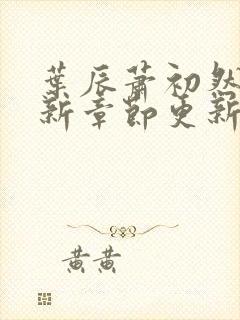 葉辰蕭初然
新章節更新
黃黃